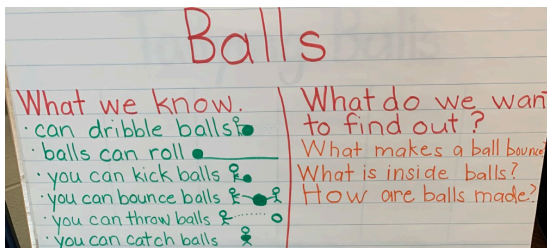 Balls
What we know.
· can dribble balls
· balls can roll
· you can kick balls
· you can bounce balls
· you can throw balls
· you can catch balls
What do we wan
to find out?
What makes a ball bounce
What is inside balls?
How are balls made?